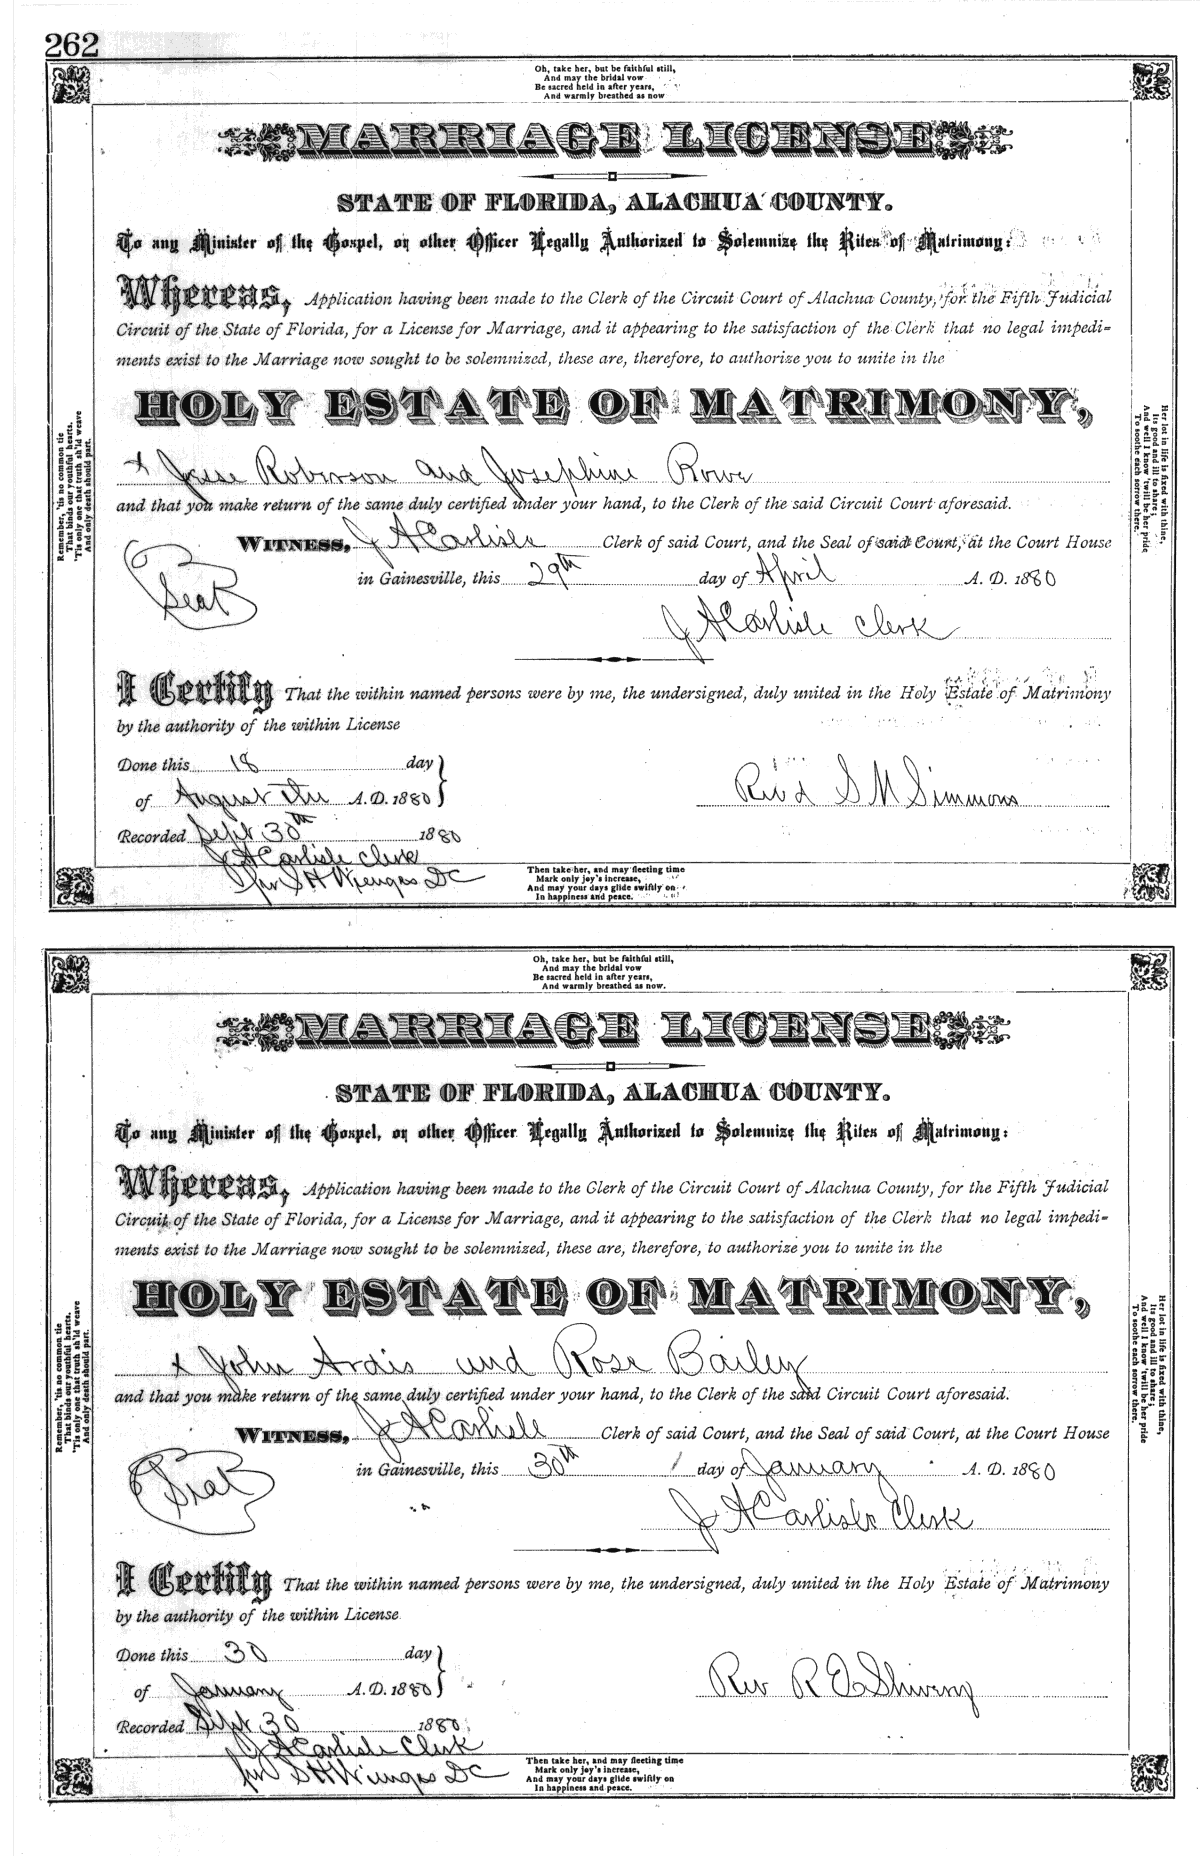 262
Oh, take her, but be faithful still,
And may the bridal vow
Be sacred held in after years,
And warmly breathed as now
MARRIAGE LICENSE
STATE OF FLORIDA, ALACHUA COUNTY.
To any Minister of the Gospel, or other Officer Legally Authorized to Solemnize the Rites of Matrimony:
Whereas, Application having been made to the Clerk of the Circuit Court of Alachua County, for the Fifth Judicial
Circuit of the State of Florida, for a License for Marriage, and it appearing to the satisfaction of the Clerk that no legal impedi-
ments exist to the Marriage now sought to be solemnized, these are, therefore, to authorize you to unite in the
HOLY ESTATE OF MATRIMONY,
x Jesse Robinson and Josephine Rowe
and that you make return of the same duly certified under your hand, to the Clerk of the said Circuit Court aforesaid.
WITNESS, J A Carlisle Clerk of said Court, and the Seal of said Court, at the Court House
Seal
in Gainesville, this 29th day of April A. D. 1880
J A Carlisle Clerk
I Certify That the within named persons were by me, the undersigned, duly united in the Holy Estate of Matrimony
by the authority of the within License
Done this 18 day
of August the A. D. 1880
Rev'd S M Simmons
Recorded Sept 30th 1880
J A Carlisle Clerk
per S H Wienges DC
Remember, 'tis no common tie
That binds our youthful hearts,
'Tis only one that truth sh'ld weave
And only death should part.
Her lot in life is fixed with thine,
Its good and ill to share;
And well I know 'twill be her pride
To soothe each sorrow there.
Then take her, and may fleeting time
Mark only joy's increase,
And may your days glide swiftly on
In happiness and peace.
Oh, take her, but be faithful still,
And may the bridal vow
Be sacred held in after years,
And warmly breathed as now.
MARRIAGE LICENSE
STATE OF FLORIDA, ALACHUA COUNTY.
To any Minister of the Gospel, or other Officer Legally Authorized to Solemnize the Rites of Matrimony:
Whereas, Application having been made to the Clerk of the Circuit Court of Alachua County, for the Fifth Judicial
Circuit of the State of Florida, for a License for Marriage, and it appearing to the satisfaction of the Clerk that no legal impedi-
ments exist to the Marriage now sought to be solemnized, these are, therefore, to authorize you to unite in the
HOLY ESTATE OF MATRIMONY,
x John Ardis and Rose Bailey
and that you make return of the same duly certified under your hand, to the Clerk of the said Circuit Court aforesaid.
WITNESS, J A Carlisle Clerk of said Court, and the Seal of said Court, at the Court House
Seal
in Gainesville, this 30th day of January A. D. 1880
J A Carlisle Clerk
I Certify That the within named persons were by me, the undersigned, duly united in the Holy Estate of Matrimony
by the authority of the within License
Done this 30 day
of January A. D. 1880
Rev R
Recorded Sept 30 1880
J A Carlisle Clerk
per S H Wienges DC
Remember, 'tis no common tie
That binds our youthful hearts,
'Tis only one that truth sh'ld weave
And only death should part.
Her lot in life is fixed with thine,
Its good and ill to share;
And well I know 'twill be her pride
To soothe each sorrow there.
Then take her, and may fleeting time
Mark only joy's increase,
And may your days glide swiftly on
In happiness and peace.